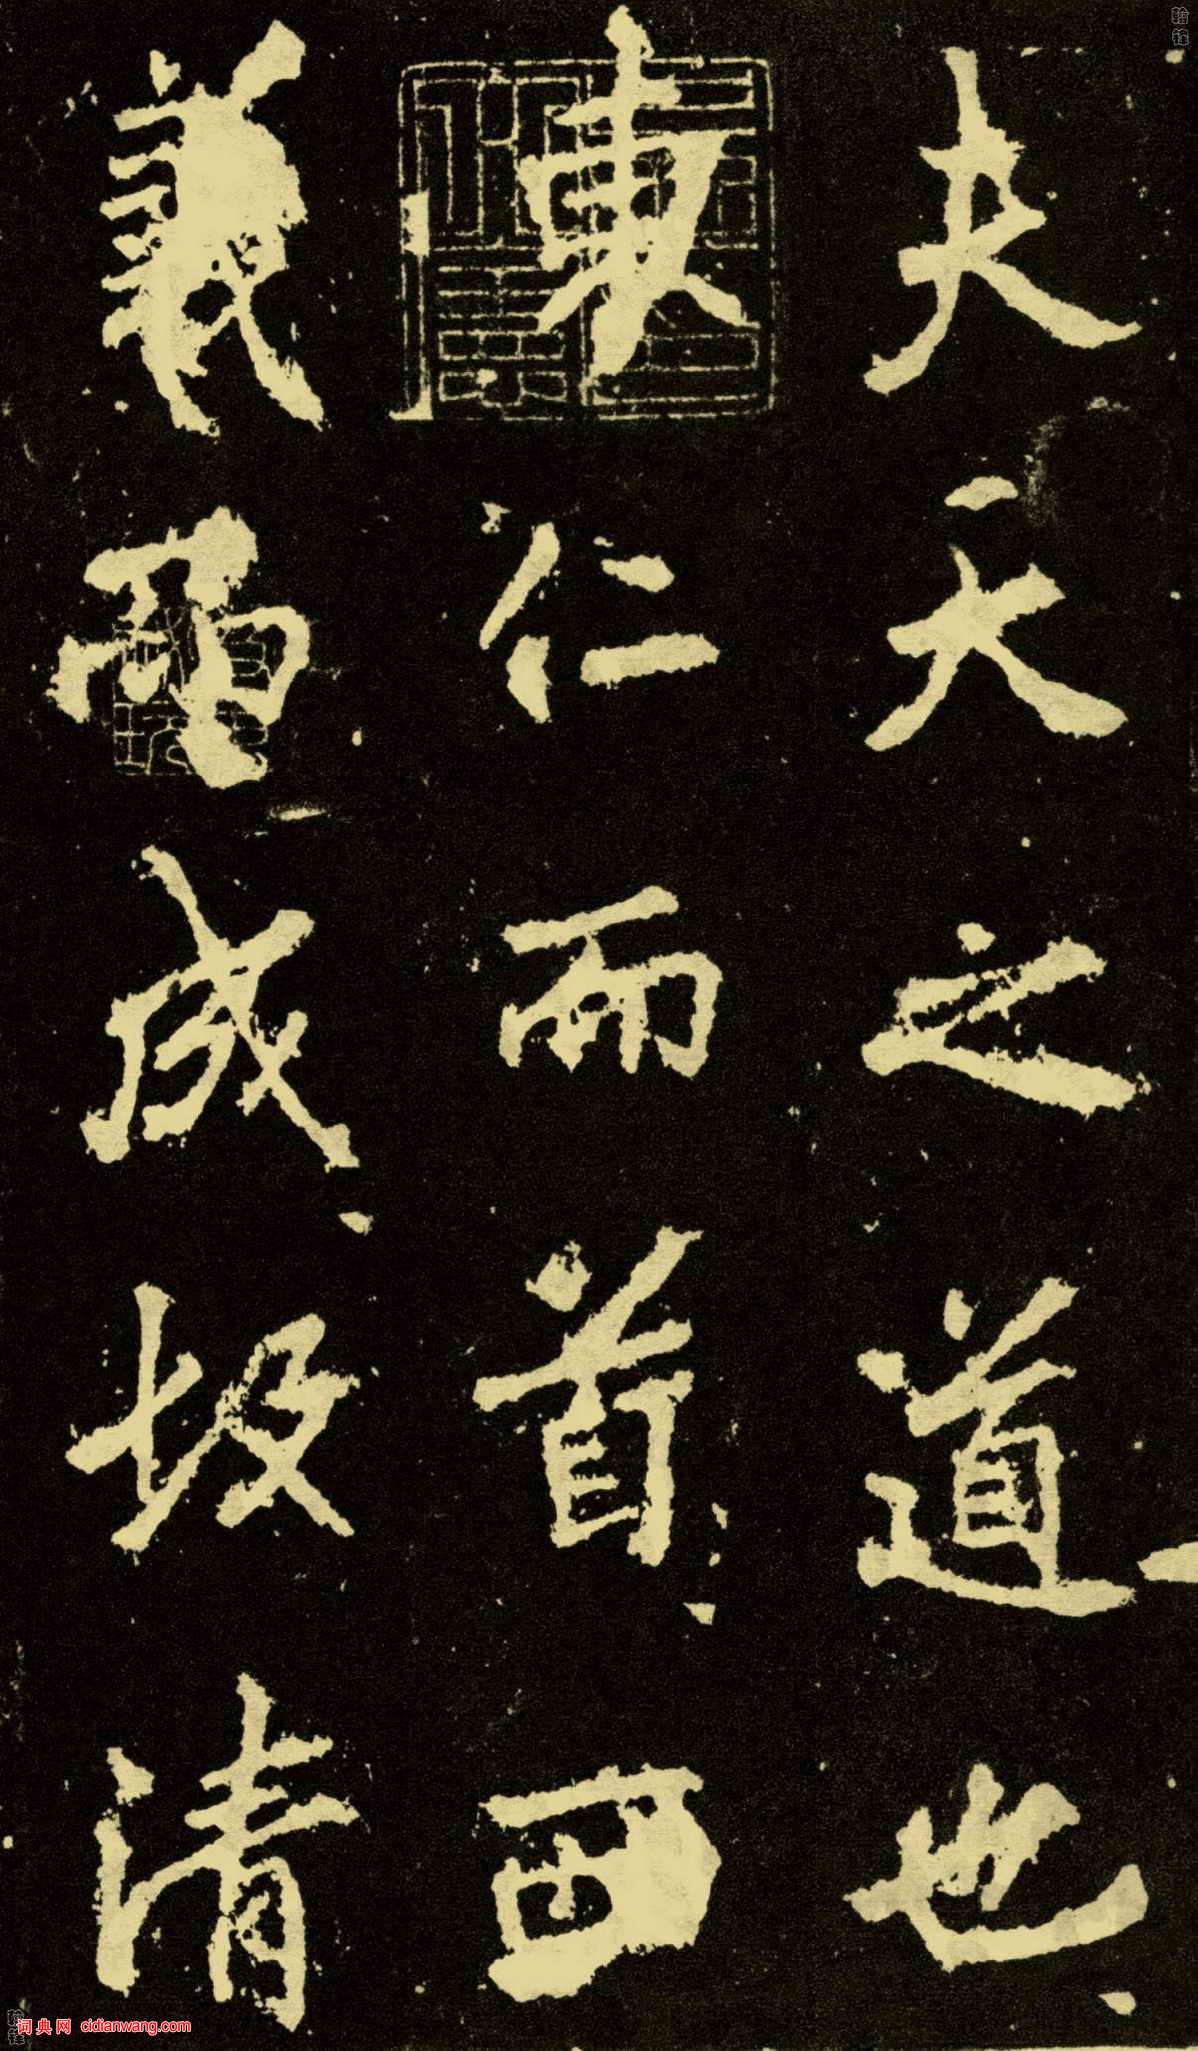 夫天之道也
東仁而首西
義而成故清
词典网 cidianwang.com